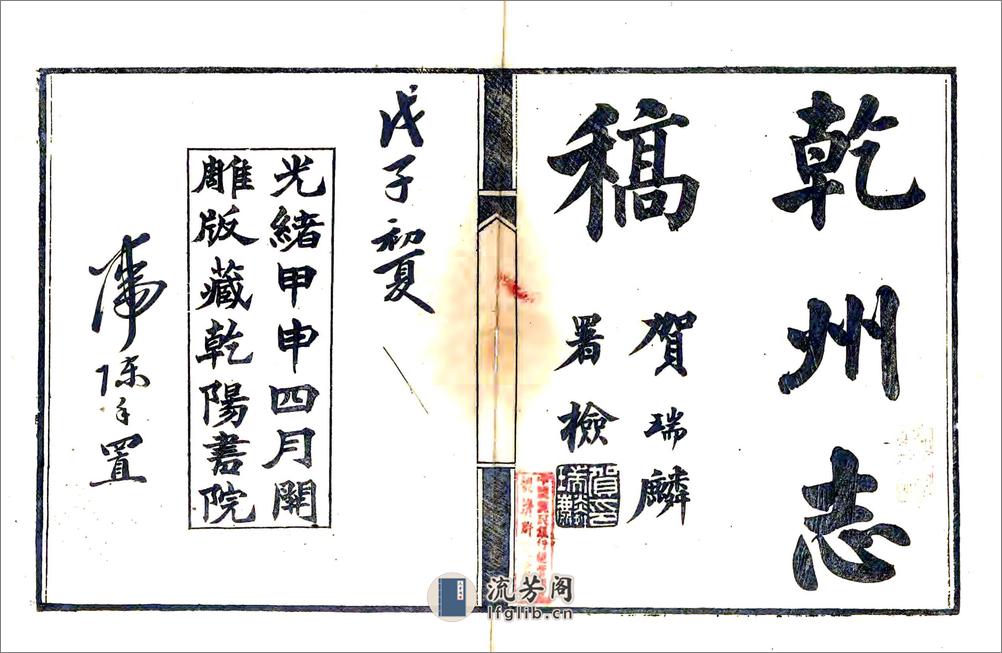 乾州志
稿
賀瑞麟
署檢
賀瑞麟印
戊子初夏
光緒甲申四月開
雕版藏乾陽書院
置
流芳阁
lfglib.cn